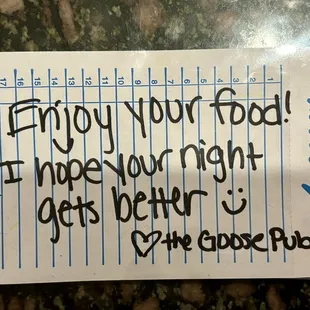 17 16 15 14 13 12 11 10 9 8 7 6 5 4 3 2 1
Enjoy your food!
I hope your night
gets better :)
♡ the Goose Pub